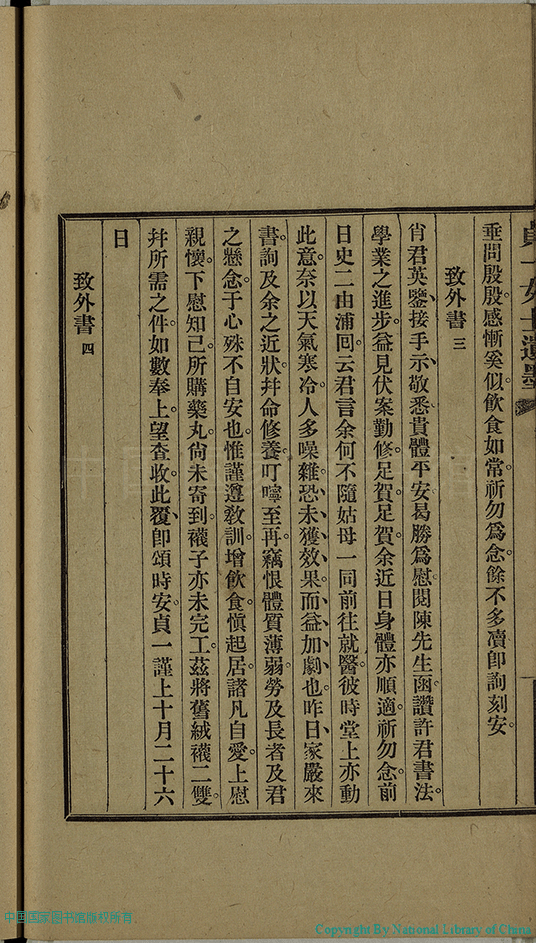 貞一女士遺墨
垂問殷殷。感慚奚似。飲食如常。祈勿爲念。餘不多凟。卽詢刻安。
致外書 三
肖君英鑒、接手示、敬悉貴體平安、曷勝爲慰。閱陳先生函讚許君書法。
學業之進步。益見伏案勤修。足賀足賀。余近日身體亦順適。祈勿念。前
日史二由浦回。云君言余何不隨姑母一同前往就醫。彼時堂上亦動
此意。奈以天氣寒冷、人多噪雜、恐未獲效果、而益加劇也。昨日、家嚴來
書。詢及余之近狀。幷命修養。叮嚀至再。竊恨體質薄弱。勞及長者及君
之懸念。于心殊不自安也。惟謹遵敎訓。增飮食。愼起居。諸凡自愛。上慰
親懷。下慰知己。所購藥丸。尙未寄到。襪子亦未完工。茲將舊絨襪二雙。
幷所需之件。如數奉上。望查收。此覆、卽頌時安。貞一謹上十月二十六
日
致外書 四
中国国家图书馆版权所有
Copyright By National Library of China